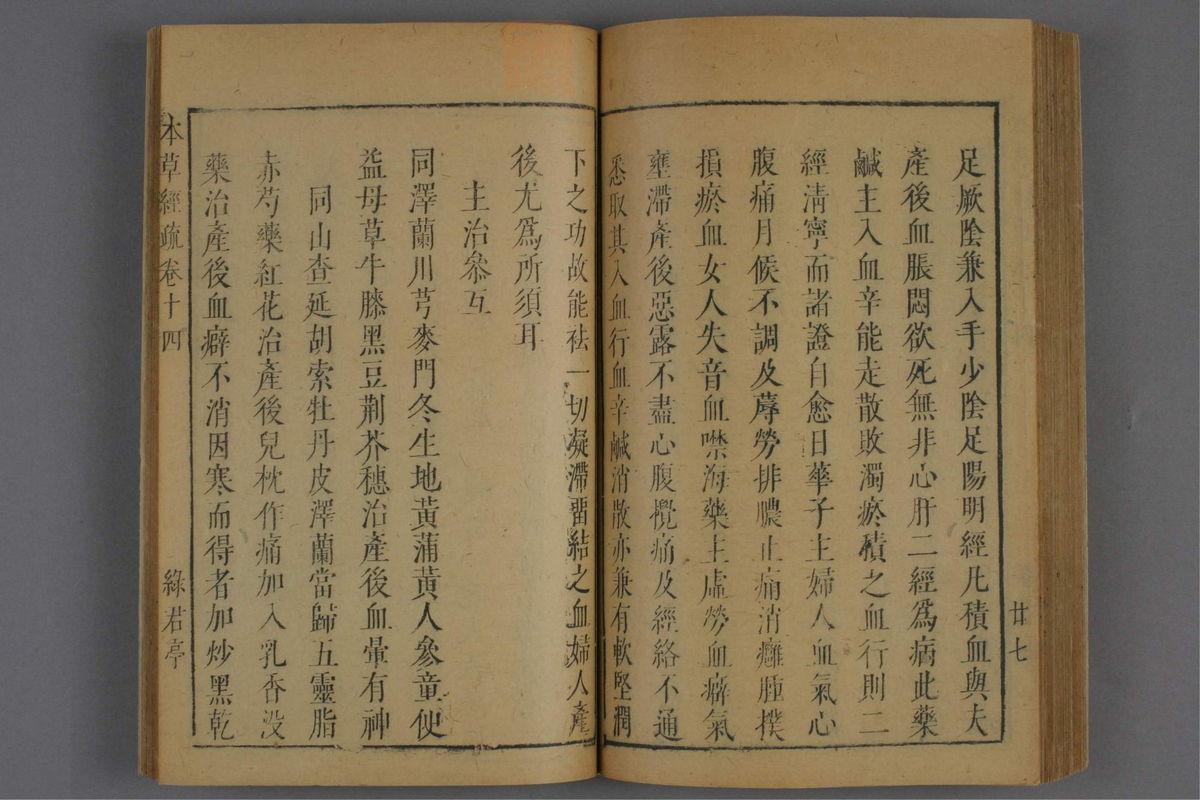 足厥陰兼入手少陰足陽明經凡積血與夫
產後血脹悶欲死無非心肝二經爲病此藥
鹹主入血辛能走散敗濁瘀積之血行則二
經清寧而諸證自愈日華子主婦人血氣心
腹痛月候不調及蓐勞排膿止痛消癰腫撲
損瘀血女人失音血噤海藥主虛勞血癖氣
壅滯產後惡露不盡心腹攪痛及經絡不通
悉取其入血行血辛鹹消散亦兼有軟堅潤
下之功故能祛一切凝滯畱結之血婦人產
後尤爲所須耳
主治參互
同澤蘭川芎麥門冬生地黃蒲黃人參童便
益母草牛膝黑豆荆芥穗治產後血暈有神
同山查延胡索牡丹皮澤蘭當歸五靈脂
赤芍藥紅花治產後兒枕作痛加入乳香沒
藥治產後血癖不消因寒而得者加炒黑乾
本草經疏卷十四
綠君亭
廿七